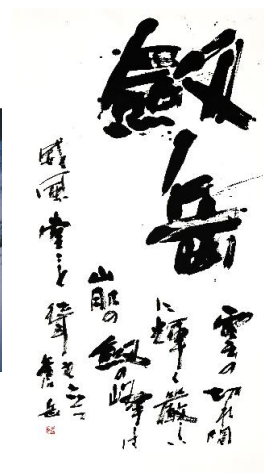 劔岳
雲の切れ間
に輝く厳しい
山肌の劔の峰は
威風堂々と聳え立つ